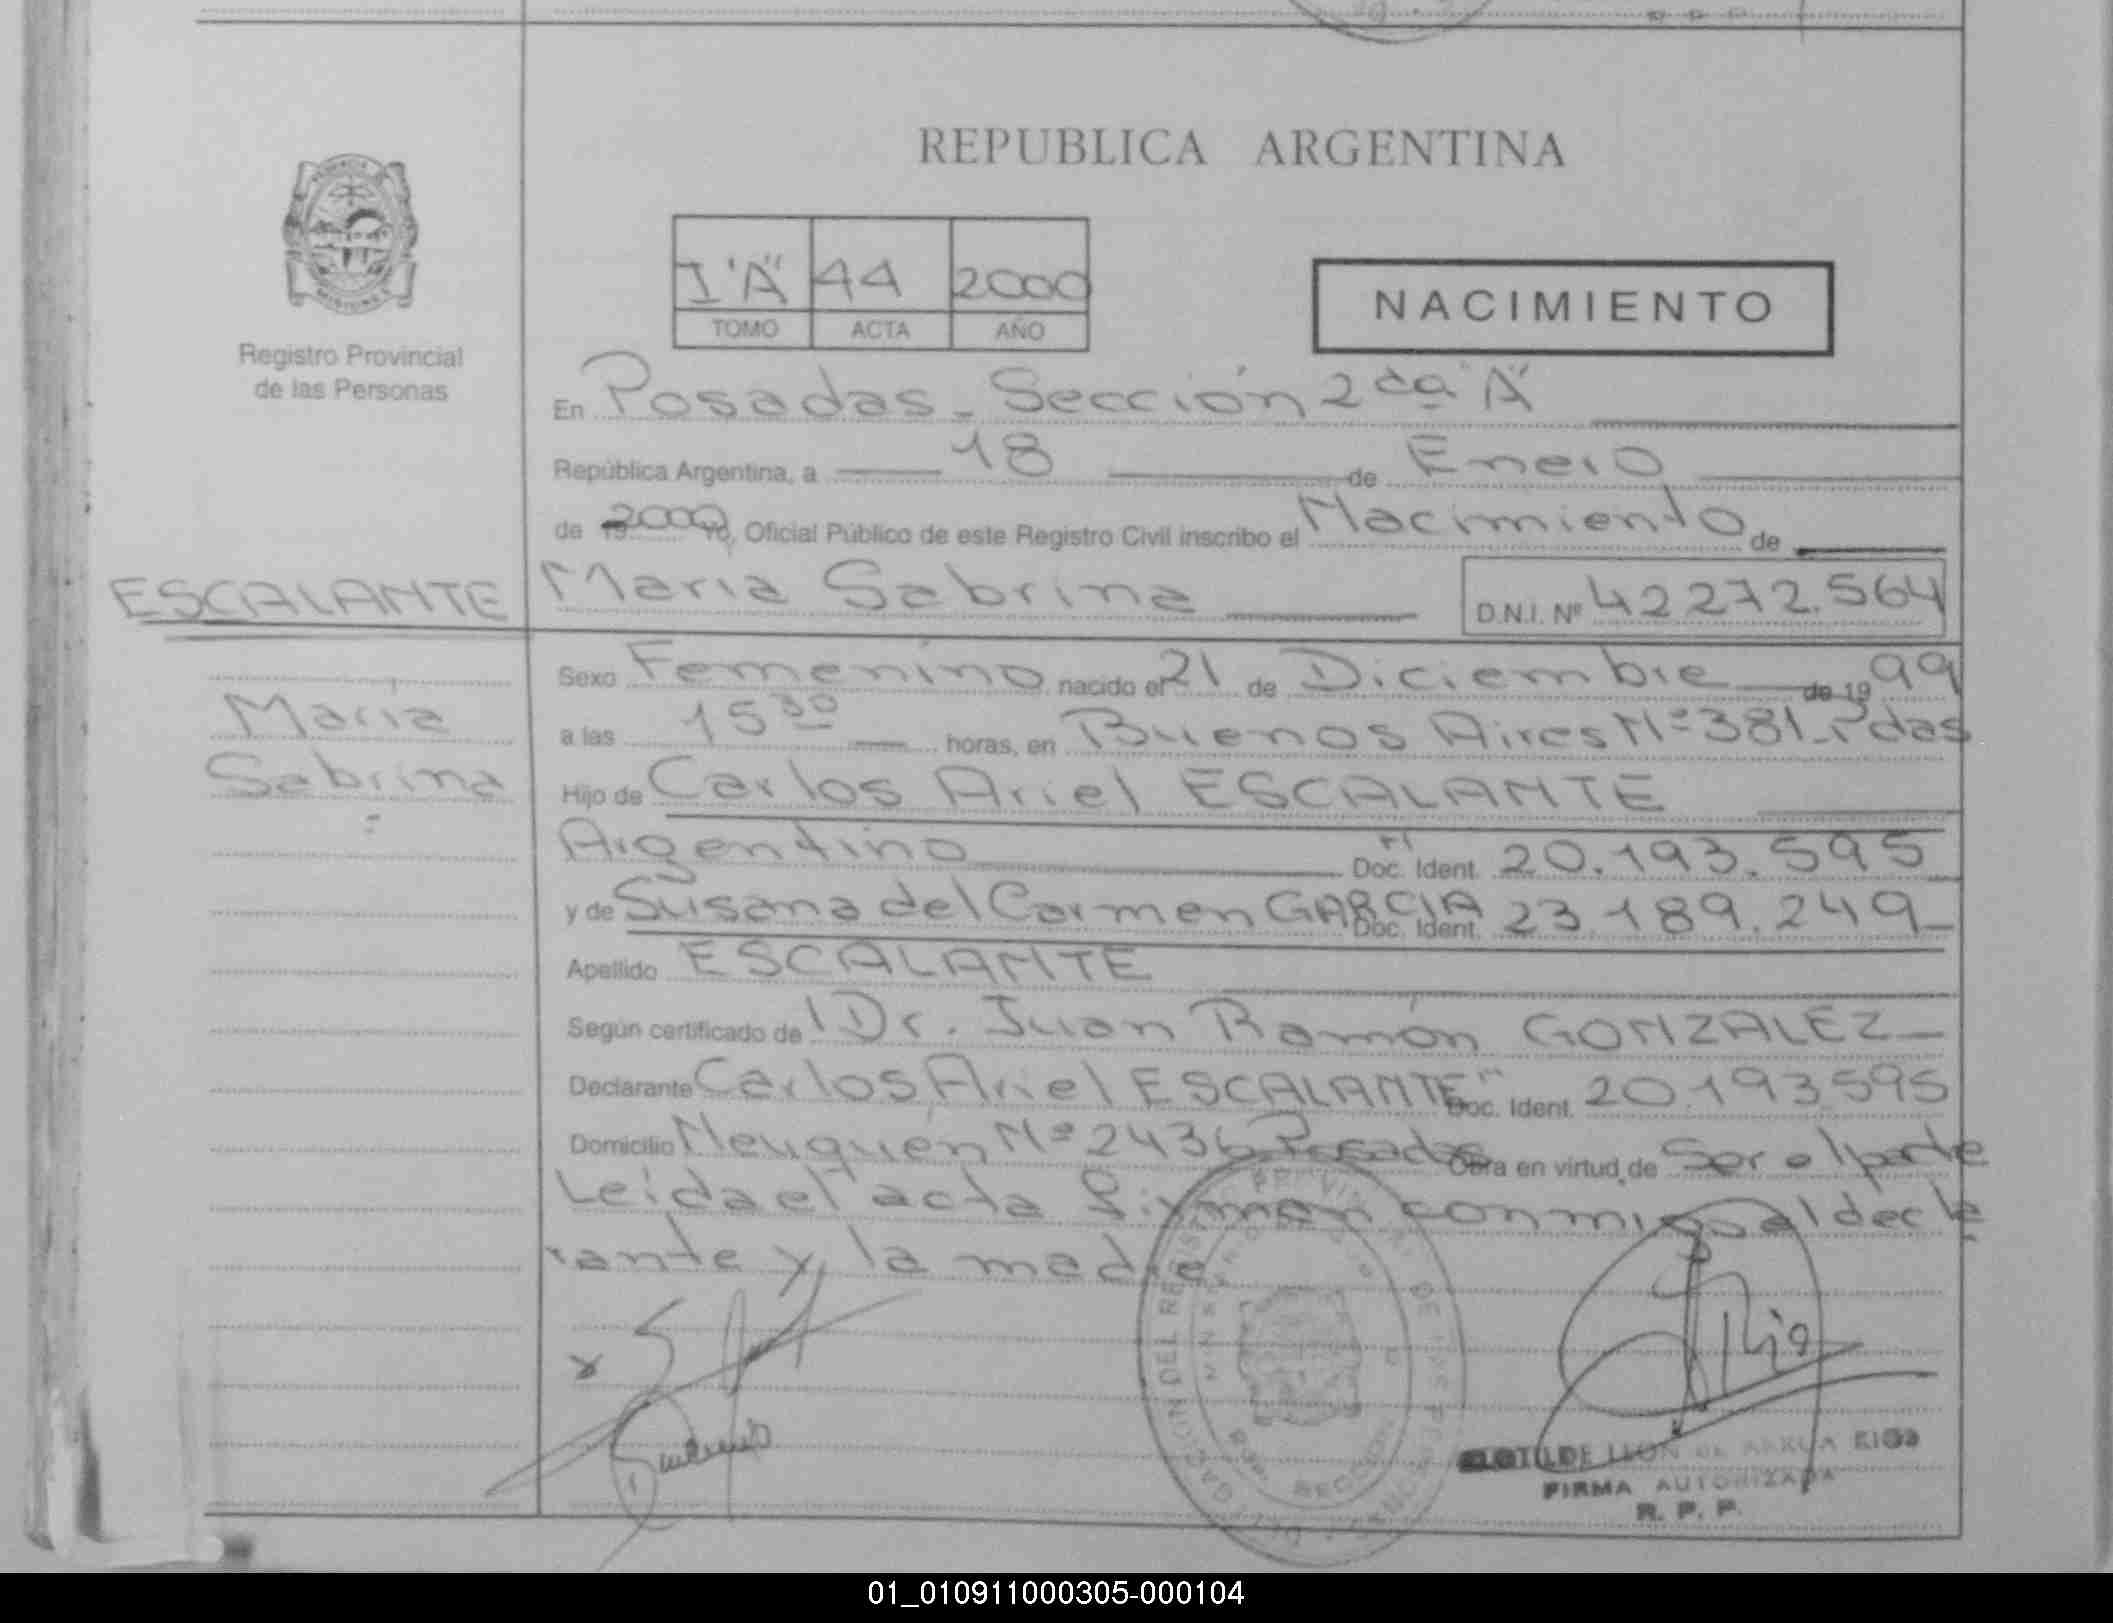 REPUBLICA ARGENTINA
I "A" 44 2000
TOMO ACTA AÑO
NACIMIENTO
Registro Provincial
de las Personas
En Posadas - Sección 2da "A"
República Argentina, a 18 de Enero
de 2000, Oficial Público de este Registro Civil inscribo el Nacimiento de
ESCALANTE
Maria Sabrina
D.N.I. Nº 42272.564
Maria
Sabrina
Sexo Femenino nacido el 21 de Diciembre de 1999
a las 15 30 horas, en Buenos Aires Nº 381 - Pdas
Hijo de Carlos Ariel ESCALANTE
Argentino Doc. Ident. 20.193.595
y de Susana del Carmen GARCIA Doc. Ident. 23.189.249
Apellido ESCALANTE
Según certificado de Dr. Juan Ramón GONZALEZ
Declarante Carlos Ariel ESCALANTE Doc. Ident. 20.193.595
Domicilio Neuquén Nº 2436 Posadas Obra en virtud de Ser el padre
Leída el acta firman conmigo el decla
rante y la madre
FIRMA AUTORIZADA
R. P. P.
01_010911000305-000104